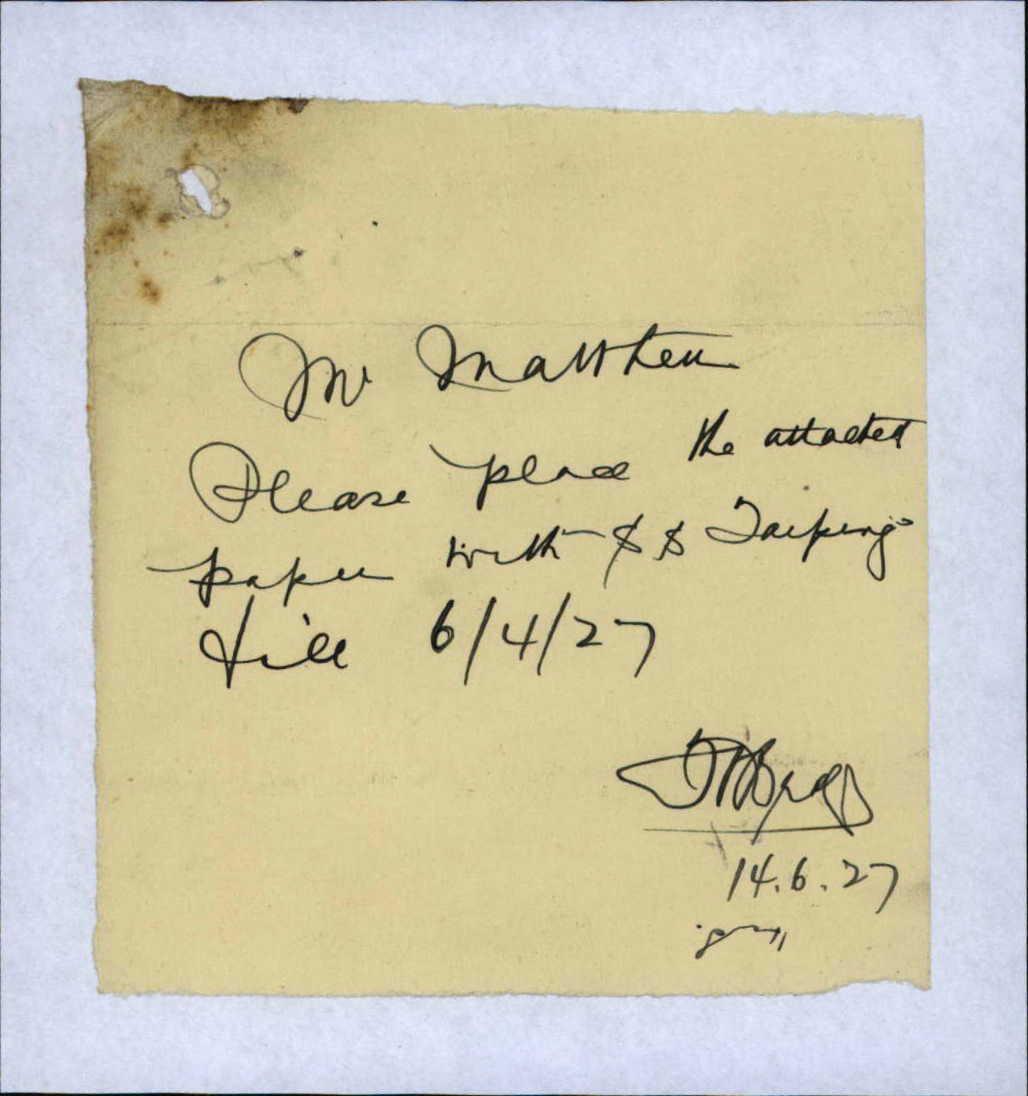 Mr Matthew
Please place the attached
paper with SS Taiping
till 6/4/27
14.6.27